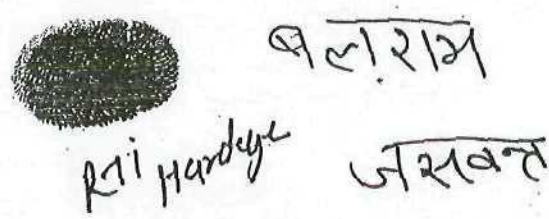 बलराम
RTI Hardeye
जसवन्त